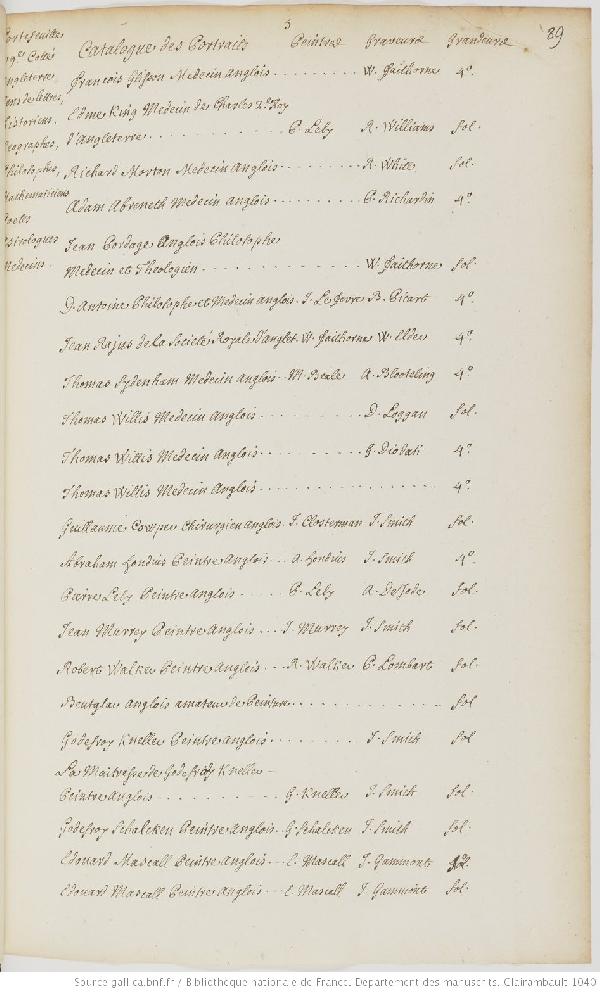 5
89
Portefeuille
Cotté
Angleterre,
Gens de lettres,
historiens,
Geographes,
Philosophes,
Mathematiciens
Poetes
Astrologues
Medecins.
Catalogue des Portraits Peintres Graveurs Grandeurs
François Glisson Medecin Anglois W. Faithorne 4°.
Edme King Medecin de Charles 2.e Roy
d'Angleterre P. Lely R. Williams fol.
Richard Morton Medecin Anglois R. White fol.
Adam Abreneth Medecin Anglois P. Richardin 4°.
Jean Cordage Anglois Philosophe
Medecin et Theologien W. Faithorne fol.
D. Antoine Philosophe et Medecin anglois. J. Le Febvre B. Picart 4°.
Jean Rajus de la Societé Royale d'Anglet. W. Faithorne W. Elder 4°.
Thomas Sydenham Medecin Anglois M. Beale A. Blooteling 4°
Thomas Willis Medecin Anglois D. Loggan fol.
Thomas Willis Medecin Anglois G. Diodati 4°.
Thomas Willis Medecin Anglois 4°.
Guillaume Cowper Chirurgien Anglois J. Closterman J. Smith fol.
Abraham Hondius Peintre Anglois A. Hondius J. Smith 4°.
Pierre Lely Peintre Anglois P. Lely A. De Jode fol.
Jean Murrey Peintre Anglois J. Murrey J. Smith fol.
Robert Walker Peintre Anglois R. Walker P. Lombart fol.
Anglois amateur de Peinture fol
Godefroy Kneller Peintre Anglois J. Smith fol
La Maitresse de Godefroy Kneller
Peintre Anglois G. Kneller J. Smith fol.
Godefroy Schalcken Peintre Anglois G. Schalcken J. Smith fol.
Edouard Mascall Peintre Anglois E. Mascall J. Gammont
Edouard Mascall Peintre Anglois E. Mascall J. Gammont fol.
Source gallica.bnf.fr / Bibliothèque nationale de France. Département des manuscrits. Clairambault 1040